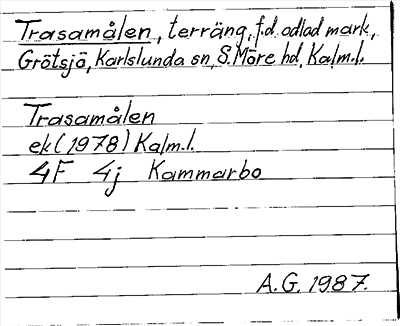 Trasamålen, terräng, f.d. odlad mark,
Grötsjö, Karlslunda sn, S. Möre hd, Kalm.l.
Trasamålen
ek (1978) Kalm.l.
4F 4j Kammarbo
A.G. 1987.